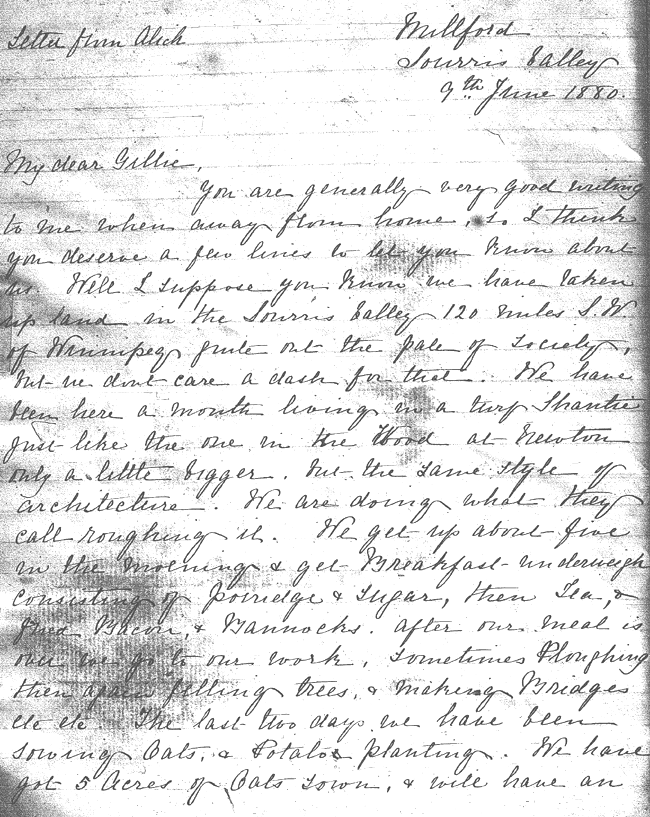 Letter from Alick
Millford
Sourris Valley
9th June 1880.
My dear Gillie,
You are generally very good writing
to me when away from home, so I think
you deserve a few lines to let you know about
us. Well I suppose you know we have taken
up land in the Sourris Valley 120 miles S.W
of Winnipeg quite out the pale of society,
but we dont care a dash for that. We have
been here a month living in a turf Shantie
just like the one in the Wood at Newton
only a little bigger. but the same style of
architecture. We are doing what they
call roughing it. We get up about five
in the morning & get Breakfast underweigh
consisting of Porridge & Sugar, then Tea, &
Fried Bacon, & Bannocks. after our meal is
over we go to our work, sometimes Ploughing
then again felling trees, & making Bridges
etc etc The last two days we have been
sowing Oats, & Potatoe planting. We have
got 5 Acres of Oats sown, & will have an